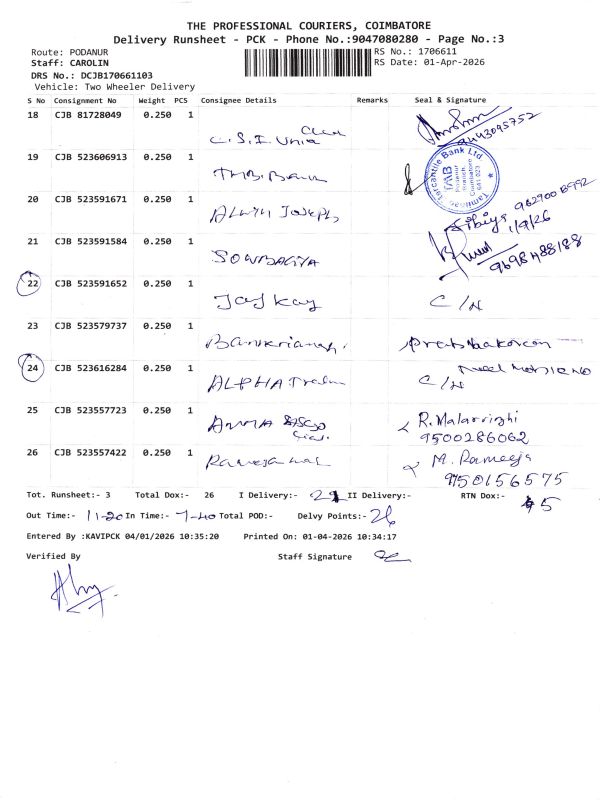 THE PROFESSIONAL COURIERS, COIMBATORE
Delivery Runsheet - PCK - Phone No.:9047080280 - Page No.:3
Route: PODANUR RS No.: 1706611
Staff: CAROLIN RS Date: 01-Apr-2026
DRS No.: DCJB170661103
Vehicle: Two Wheeler Delivery
S No Consignment No Weight PCS Consignee Details Remarks Seal & Signature
18 CJB 81728049 0.250 1 C.S.I. 9443095752
19 CJB 523606913 0.250 1 TMB. Bank
Tamilnad Mercantile Bank Ltd
TMB
Podanur
Branch
Coimbatore
641 023
20 CJB 523591671 0.250 1 ALWIN JOSEPH
21 CJB 523591584 0.250 1 SOWBAGYA 9698488188
22 CJB 523591652 0.250 1 Jaykay C/N
23 CJB 523579737 0.250 1 Prabhakaran
24 CJB 523616284 0.250 1 ALPHA C/N
25 CJB 523557723 0.250 1 ANNA R. Malarvizhi
9500286062
26 CJB 523557422 0.250 1 M. Rameeja
9750156575
Tot. Runsheet:- 3 Total Dox:- 26 I Delivery:- 21 II Delivery:- RTN Dox:- 5
Out Time:- 11-20 In Time:- 7-40 Total POD:- Delvy Points:- 26
Entered By :KAVIPCK 04/01/2026 10:35:20 Printed On: 01-04-2026 10:34:17
Verified By Staff Signature